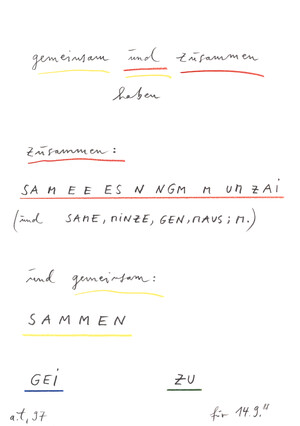 gemeinsam und zusammen
haben
zusammen:
SAMEEES N NGM M UN ZAi
(und SAME, MINZE, GEN, MAUS; M.)
und gemeinsam:
SAMMEN
GEi ZU
a.t, 97 für 14.9."